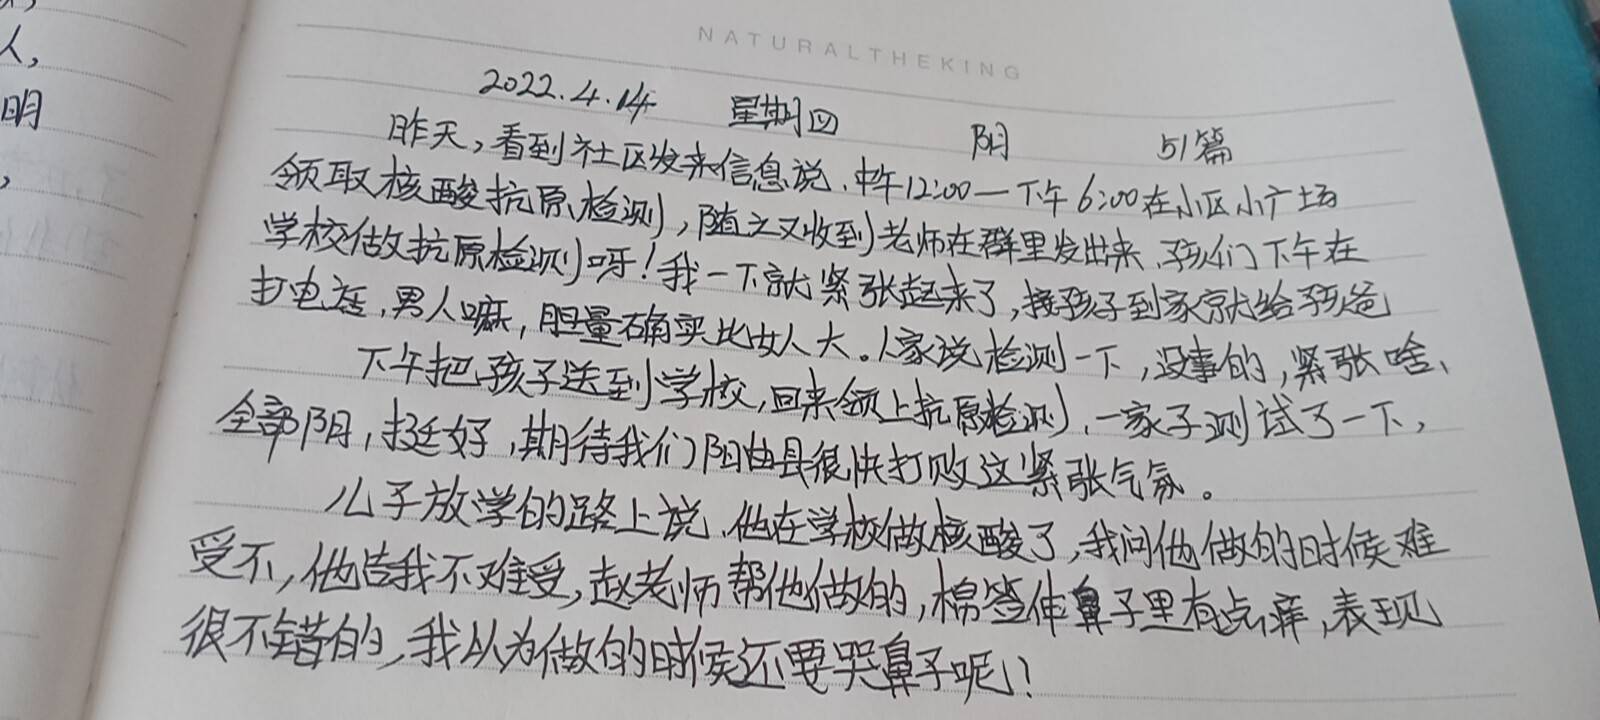 人,
明
,
NATURALTHEKING
2022.4.14 星期四 阴 51篇
昨天,看到社区发来信息说、中午12:00—下午6:00在小区小广场
领取核酸抗原检测,随之又收到老师在群里发出来、孩们下午在
学校做抗原检测呀!我一下就紧张起来了,接孩子到家就给孩爸
打电话,男人嘛,胆量确实比女人大。人家说检测一下,没事的,紧张啥、
下午把孩子送到学校,回来领上抗原检测、一家子测试了一下,
全部阴,挺好,期待我们阳曲县很快打败这紧张气氛。
儿子放学的路上说、他在学校做核酸了,我问他做的时候难
受不,他告我不难受,赵老师帮他做的,棉签伸鼻子里有点痒,表现
很不错的,我以为做的时候还要哭鼻子呢!